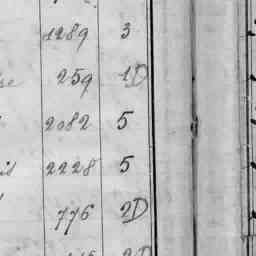 1289 3
259 1D
2082 5
2228 5
776 2D